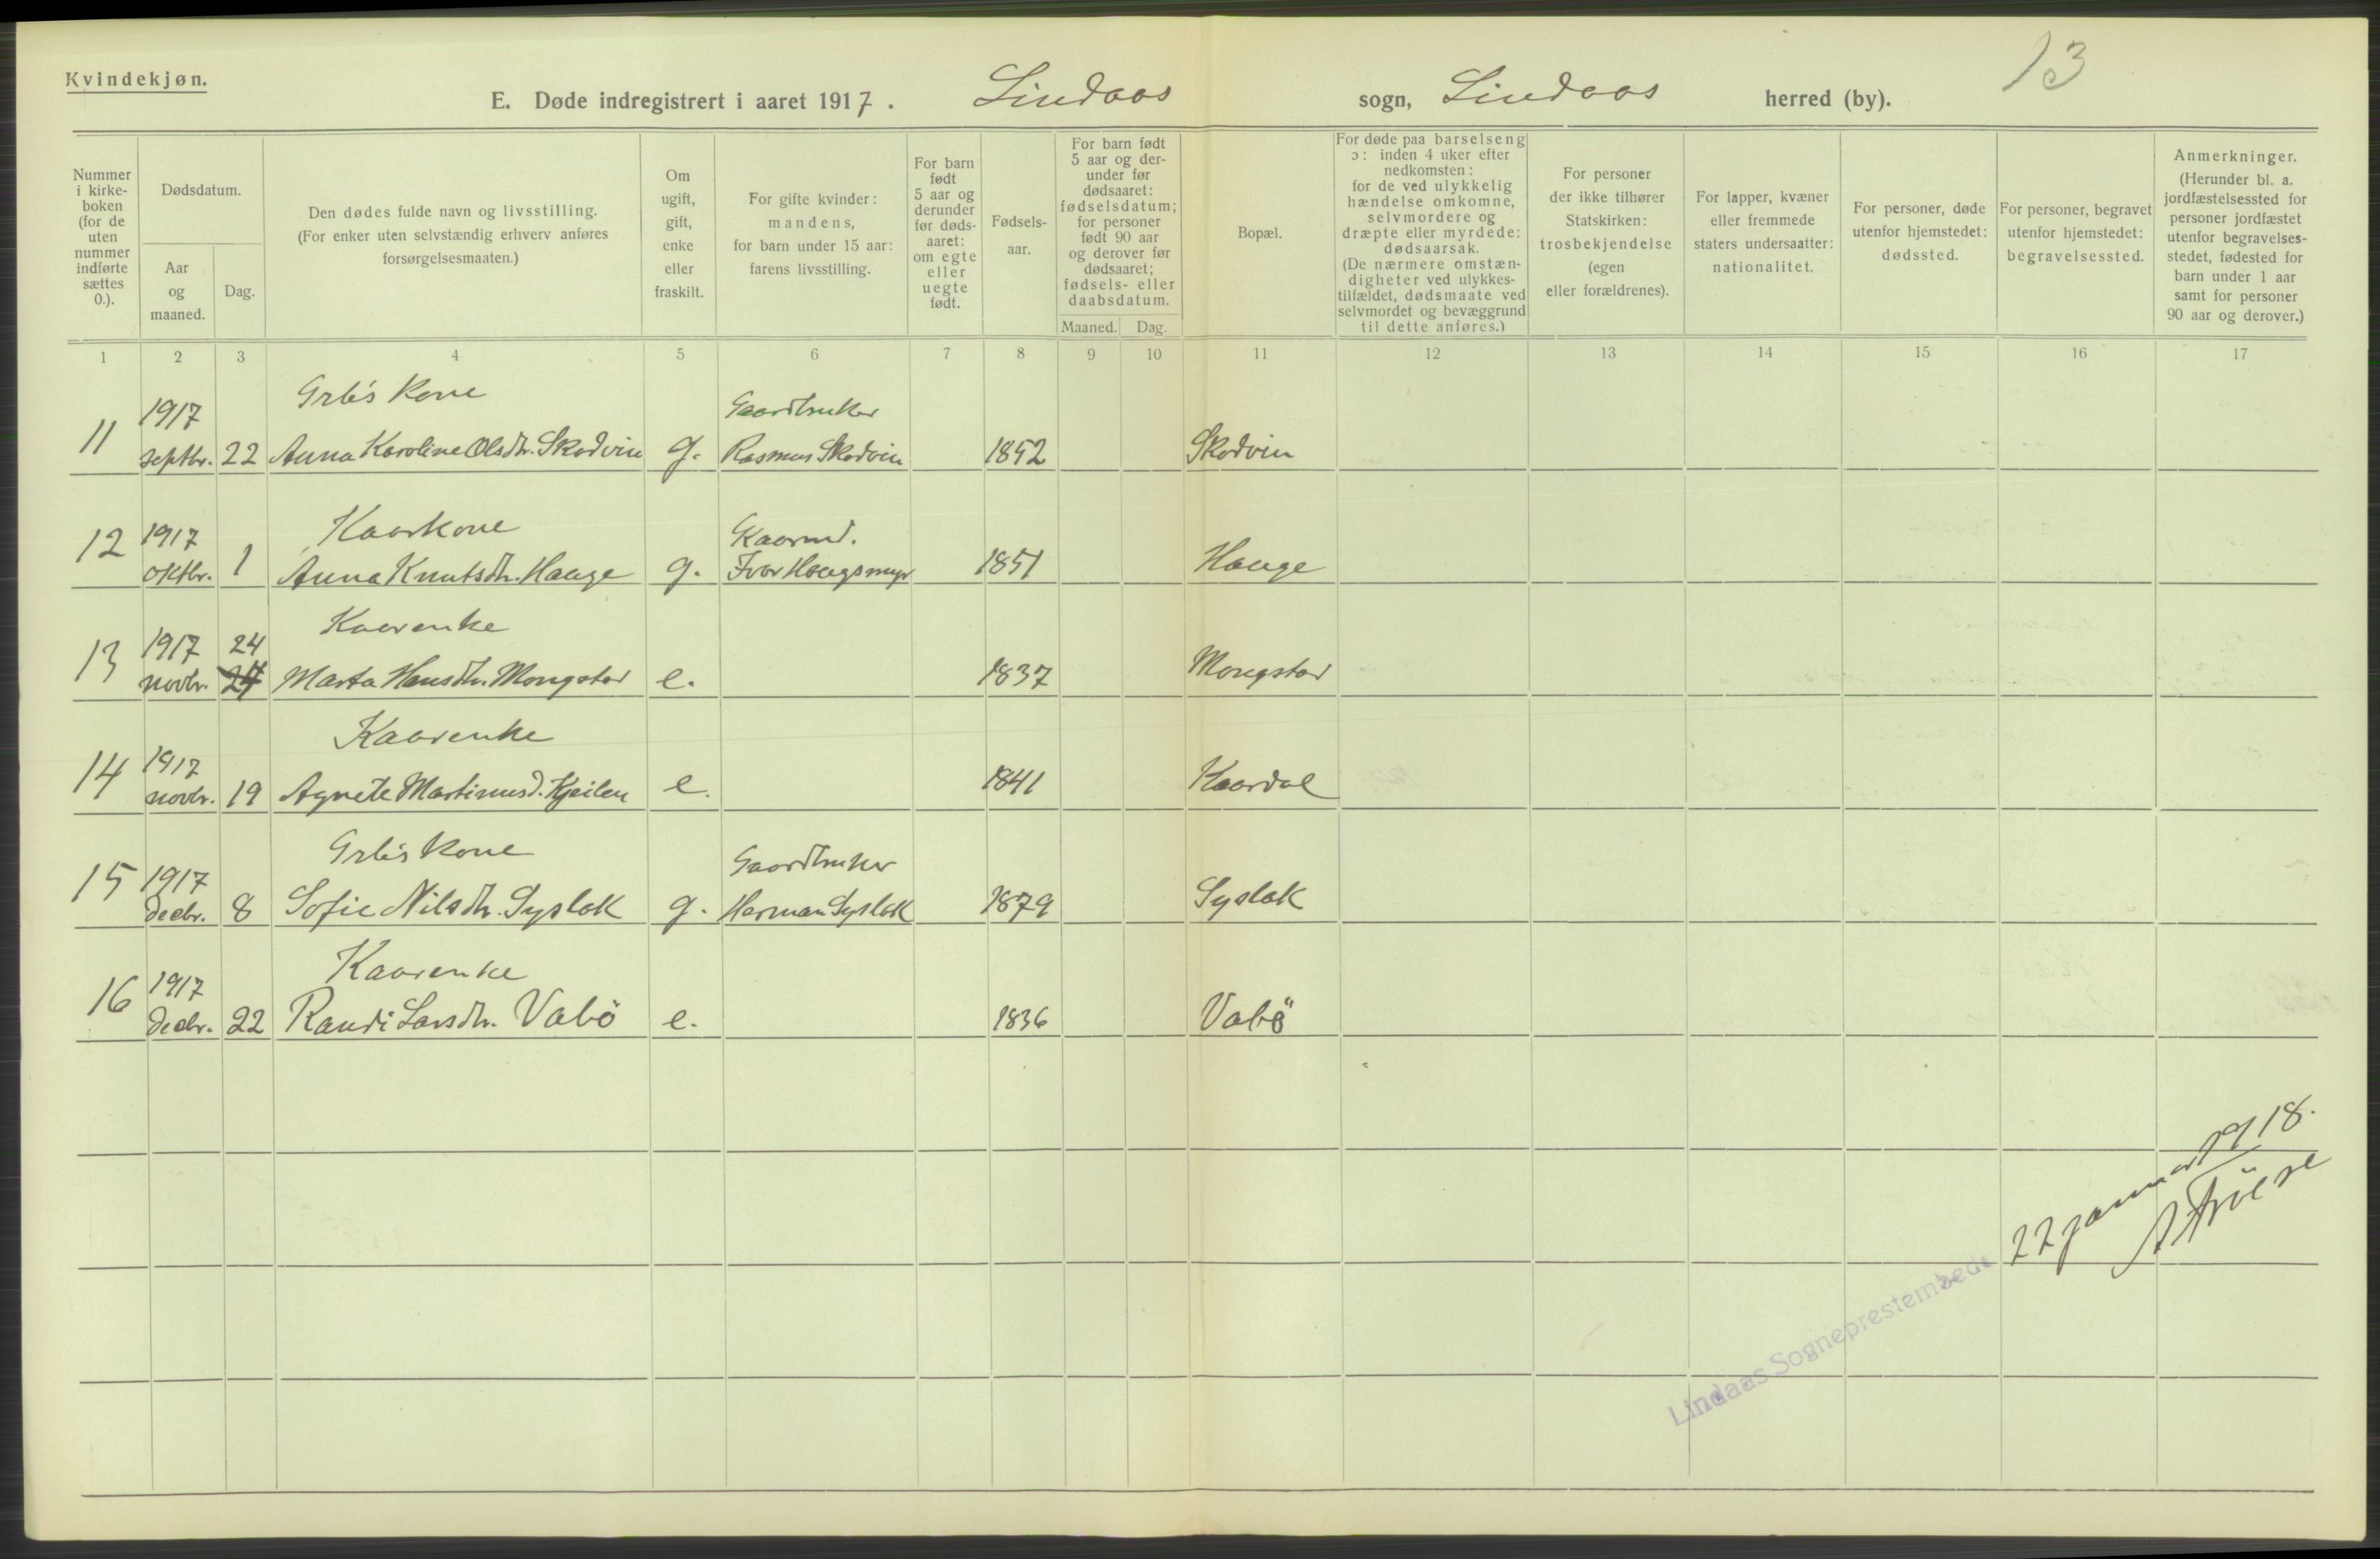 Kvindekjøn.
13
E. Døde indregistrert i aaret 1917. Lindaas sogn, Lindaas herred (by).
Nummer i kirke-boken (for de uten nummer indførte sættes 0.).
Dødsdatum.
Aar og maaned.
Dag.
Den dødes fulde navn og livsstilling.
(For enker uten selvstændig erhverv anføres forsørgelsesmaaten.)
Om ugift, gift, enke eller fraskilt.
For gifte kvinder: mandens, for barn under 15 aar: farens livsstilling.
For barn født 5 aar og derunder før døds-aaret: om egte eller uegte født.
Fødsels-aar.
For barn født 5 aar og der-under før dødsaaret: fødselsdatum; for personer født 90 aar og derover før dødsaaret; fødsels- eller daabsdatum.
Maaned.
Dag.
Bopæl.
For døde paa barselseng ɔ: inden 4 uker efter nedkomsten: for de ved ulykkelig hændelse omkomne, selvmordere og dræpte eller myrdede: dødsaarsak.
(De nærmere omstæn-digheter ved ulykkes-tilfældet, dødsmaate ved selvmordet og bevæggrund til dette anføres.)
For personer der ikke tilhører Statskirken: trosbekjendelse (egen eller forældrenes).
For lapper, kvæner eller fremmede staters undersaatter: nationalitet.
For personer, døde utenfor hjemstedet: dødssted.
For personer, begravet utenfor hjemstedet: begravelsessted.
Anmerkninger.
(Herunder bl. a. jordfæstelsessted for personer jordfæstet utenfor begravelses-stedet, fødested for barn under 1 aar samt for personer 90 aar og derover.)
1 2 3 4 5 6 7 8 9 10 11 12 13 14 15 16 17
1917 Grb's kone Gaardbruker
11 septbr. 22 Anna Karoline Olsdtr. Skodvin g. Rasmus Skodvin 1852 Skodvin
1917 Kaarkone Kaarmd.
12 oktbr. 1 Anna Knutsdtr. Hauge g. Ivar Haugsmyr 1851 Hauge
1917 24 Kaarenke
13 novbr. 24 Marta Hansdtr. Mongstad e. 1837 Mongstad
1917 Kaarenke
14 novbr. 19 Agnete Martinusd. Kjeilen e. 1841 Kaardal
1917 Grb's kone Gaardbruker
15 decbr. 8 Sofie Nilsdtr. Syslak g. Herman Syslak 1879 Syslak
1917 Kaarenke
16 decbr. 22 Randi Larsdtr. Vabö e. 1836 Vabö
22 januar 1918.
Lindaas Sogneprestembede